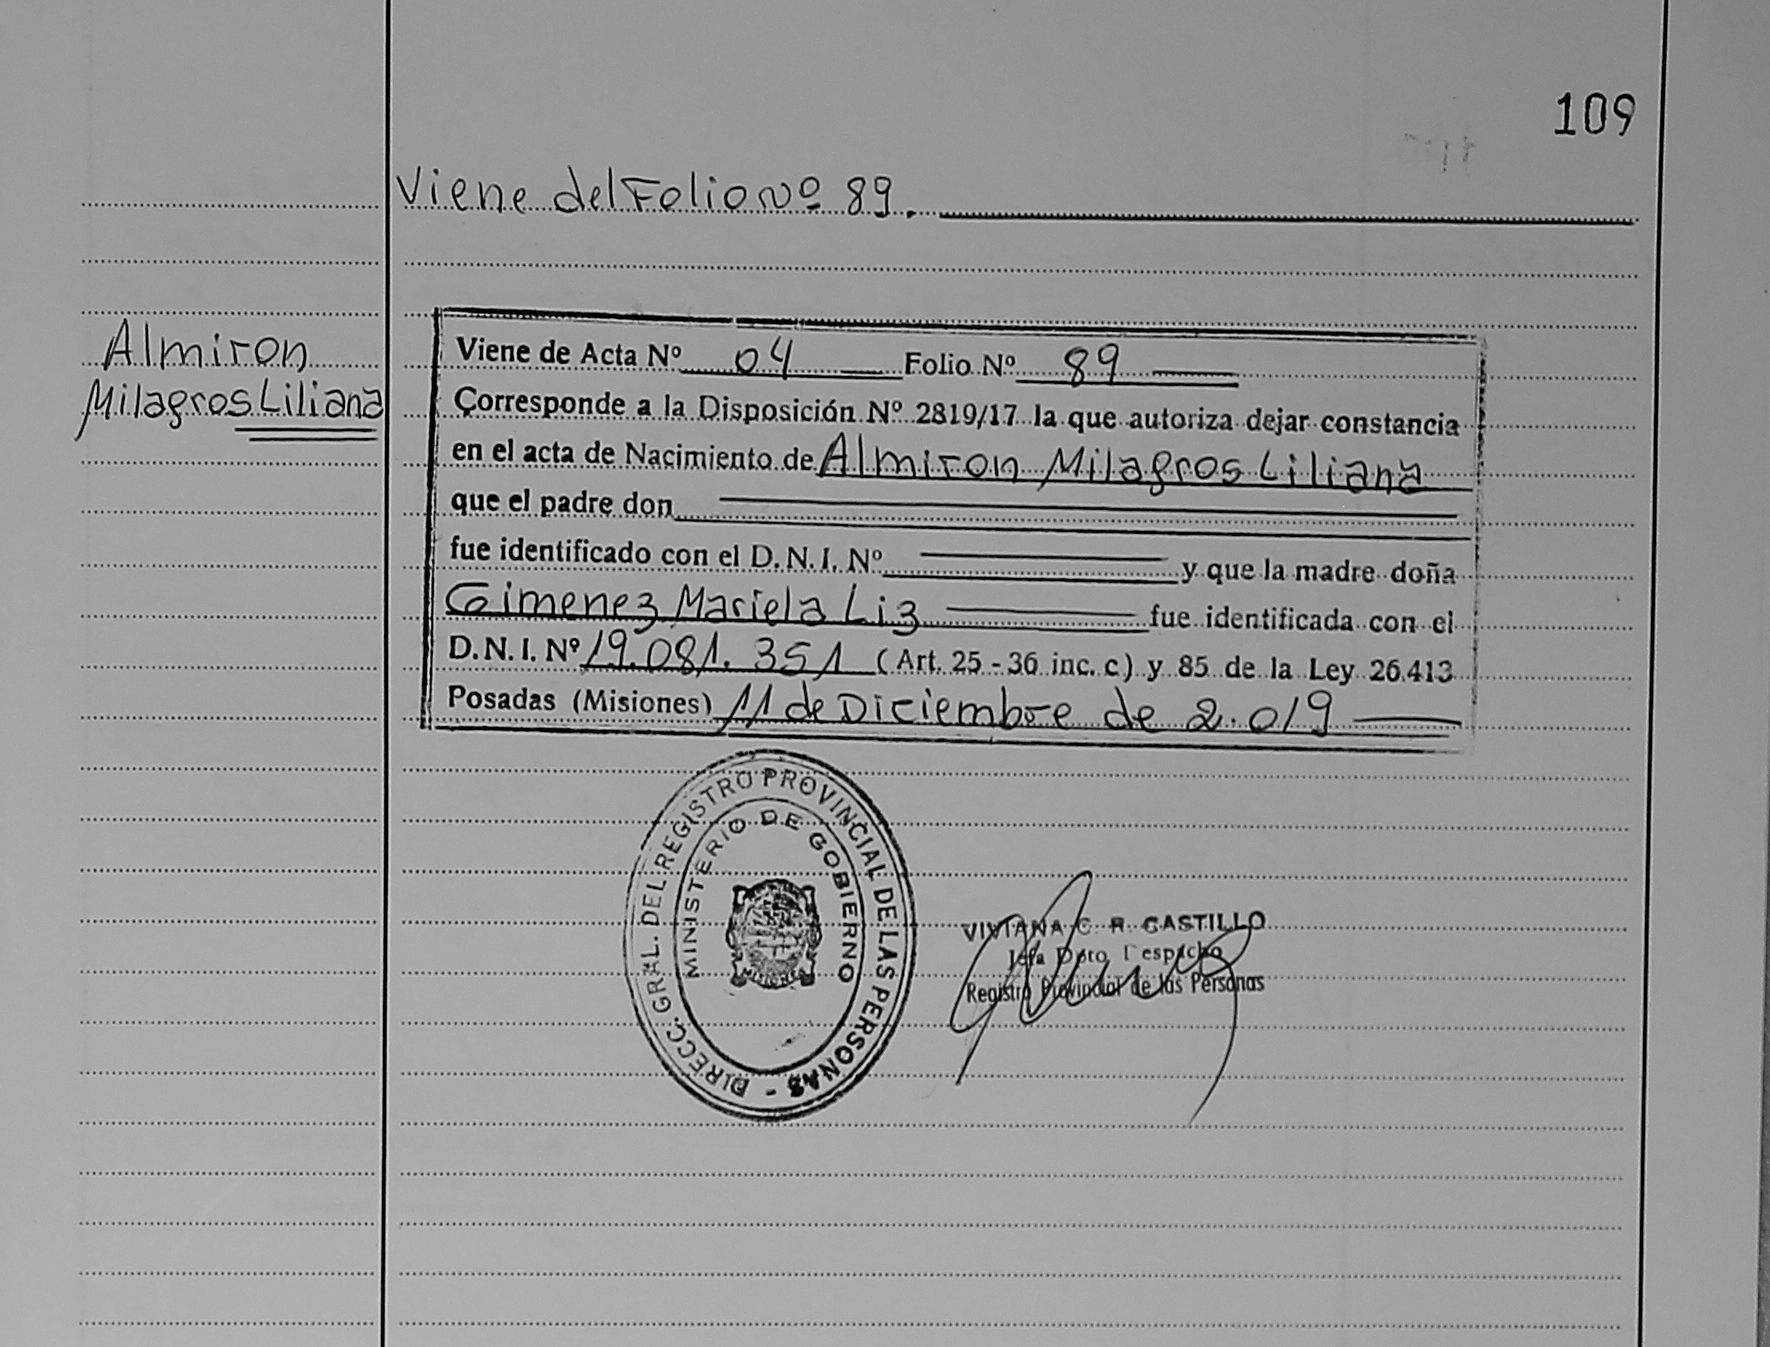 109
Viene del Folio Nº 89.
Almiron
Milagros Liliana
Viene de Acta Nº 04 Folio Nº 89
Corresponde a la Disposición Nº 2819/17 la que autoriza dejar constancia
en el acta de Nacimiento de Almiron Milagros Liliana
que el padre don
fue identificado con el D. N. I. Nº y que la madre doña
Gimenez Mariela Liz fue identificada con el
D. N. I. Nº 19.081.351 (Art. 25 - 36 inc. c) y 85 de la Ley 26.413
Posadas (Misiones) 11 de Diciembre de 2.019
DIRECC. GRAL. DEL REGISTRO PROVINCIAL DE LAS PERSONAS -
MINISTERIO DE GOBIERNO
VIVIANA C. R. CASTILLO
Jefa Dpto. Despacho
Registro Provincial de las Personas